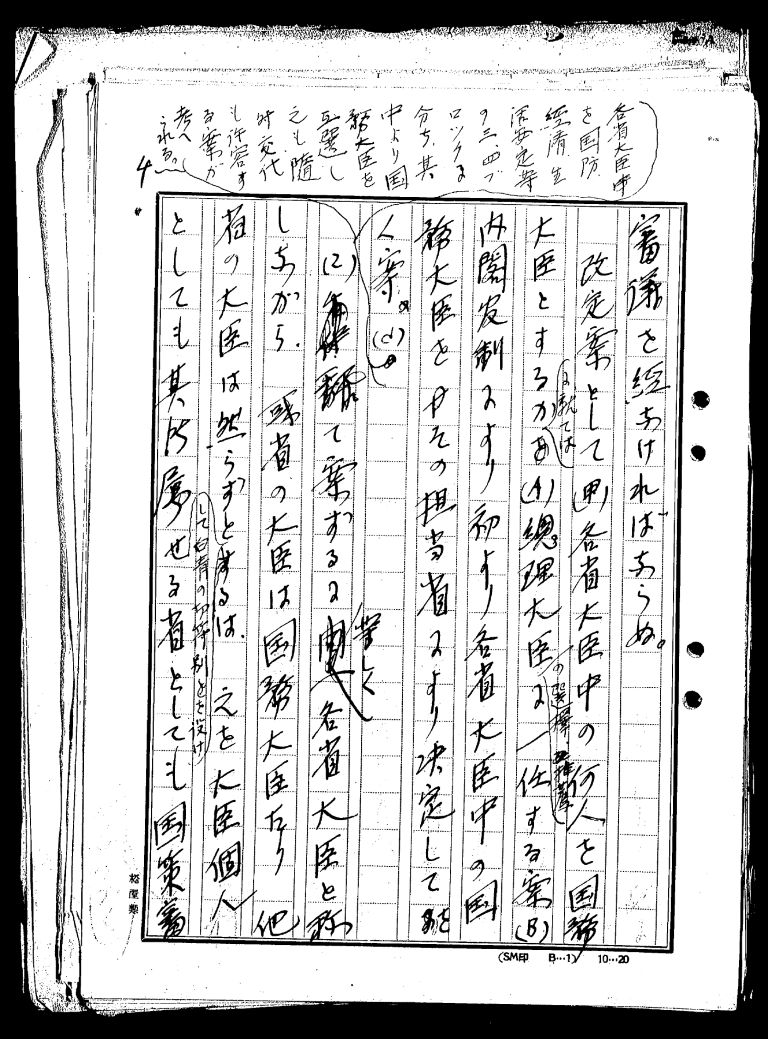 各省大臣中
を国防
経済生
活安定等
の三、四ブ
ロックに
分ち、其
中より国
務大臣を
互選し
之も随
時交代
も許容す
る案が
考へ
られる。
4
審議を経なければならぬ。
改定案として(甲)各省大臣中の何人を国務
大臣とするかに就ては(A)総理大臣の選択に一任する案(B)
内閣官制により初より各省大臣中の国
務大臣をやその担当省により決定して
く案。(d)
(2)飜て案ずるに等しく各省大臣と称
しながら、或省の大臣は国務大臣たり他
省の大臣は然らずとするは、之を大臣個人
として
としても其所属せる省としても国策審
(SM印 B…1) 10…20